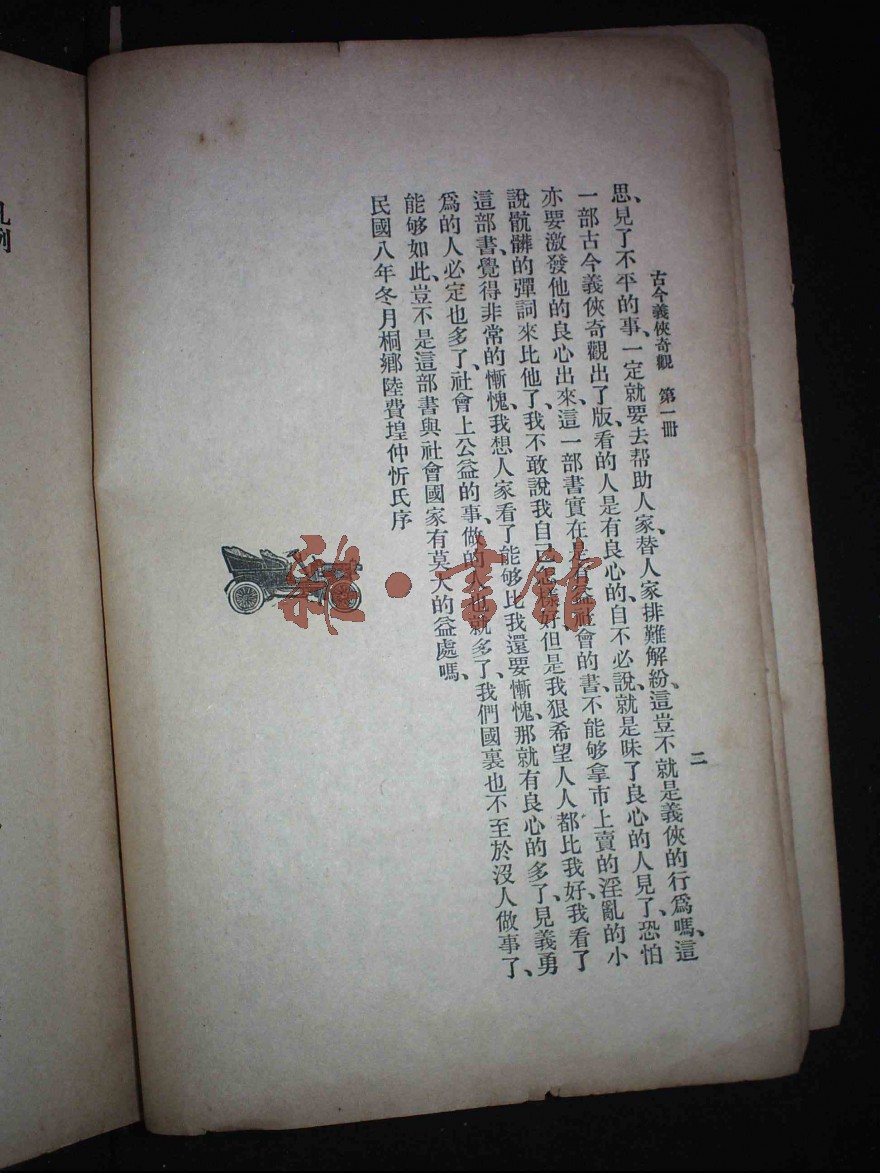 古今義俠奇觀　第一冊
二
思、見了不平的事、一定就要去帮助人家、替人家排難解紛、這豈不就是義俠的行爲嗎、這
一部古今義俠奇觀出了版、看的人是有良心的、自不必說、就是昧了良心的人見了、恐怕
亦要激發他的良心出來、這一部書實在是有益社會的書、不能够拿市上賣的淫亂的小
說骯髒的彈詞來比他了、我不敢說我自己怎樣好、但是我狠希望人人都比我好、我看了
這部書、覺得非常的慚愧、我想人家看了能够比我還要慚愧、那就有良心的多了、見義勇
爲的人必定也多了、社會上公益的事、做的人也就多了、我們國裏也不至於沒人做事了、
能够如此、豈不是這部書與社會國家有莫大的益處嗎、
民國八年冬月桐鄉陸費堭仲忻氏序
凡例
雜·書館